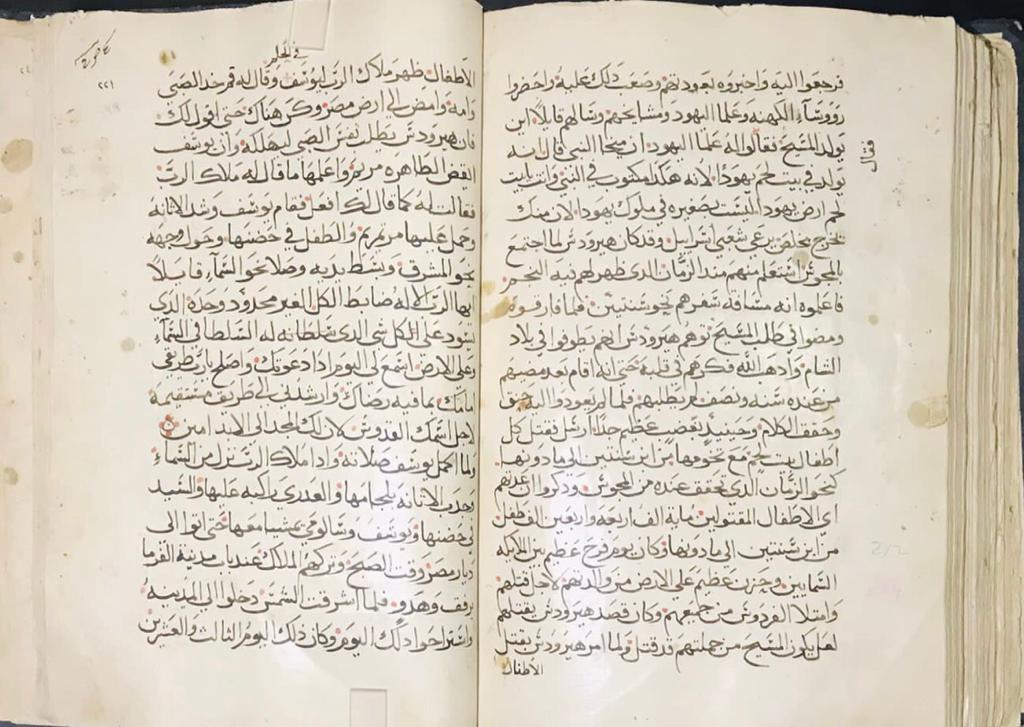 فرجعوا اليه واخبروه بعودتهم وصعب ذلك عليه واحضروا
رووسآء الكهنه وعلما اليهود ومشايخهم وسالهم قايلاً اين
يولد المسيح فقالوا له علما اليهود ان ميخا النبي قال انه
يولد في بيت لحم يهودا لانه هكذا مكتوب في النبي وانت يابيت
لحم ارض يهودا لست صغيره في ملوك يهودا لان منك
يخرج مخلص يرعي شعبي اسراييل وقد كان هيرودس لما اجتمع
بالمجوس استعلم منهم منذ الزمان الذي ظهر لهم فيه النجم
فاعلموه انه مسافة سفرهم نحو سنتين فلما فارقوه
ومضوا في طلب المسيح توهم هيرودس انهم يطوفوا في بلاد
الشام واذهب الله فكرهم في قلبه حتي انه اقام بعد مضيهم
من عنده سنه ونصف لم يطلبهم فلما لم يعودوا اليه
وحقق الكلام وحينيذ بغضب عظيم جدا ارسل فقتل كل
اطفال بيت لحم مع تخومها من ابن سنتين الي ما دونها
كنحو الزمان الذي تحقق عنده من المجوس وذكروا ان عدتهم
اي الاطفال المقتولين ماية الف اربعه واربعين الف طفل
من ابن سنتين الي ما دونها وكان يوم فرح عظيم بين الملايكه
السمايين وحزن عظيم علي الارض من والديهم لاجل قتلهم
وامتلا الفردوس من جميعهم وكان قصد هيرودس بقتلهم
لعل يكون المسيح من جملتهم قد قتل ولما امر هيرودس بقتل
الاطفال
فقال
٢٢١
في الحلم
الاطفال ظهر ملاك الرب ليوسف وقال له قم خد الصبي
وامه وامض الي ارض مصر وكن هناك حتي اقول لك
فان هيرودس يطلب نفس الصبي ليهلكه وان يوسف
ايقض الطاهره مريم واعلمها ما قال له ملاك الرب
فقالت له كما قال لك افعل فقام يوسف وشد الاتانه
وحمل عليها مرتمريم والطفل في حضنها وحول وجهه
نحو المشرق وبسط يديه وصلا نحو السمآء قايلاً
ايها الرب الاله ضابط الكل الغير محدود وحده الذي
تسود علي الكل شي الذي سلطانه له السلطا في السمآء
وعلي الارض اسمع لي اليوم اذا دعوتك واصلح يارب طريقي
امامك بما فيه رضاك وارشدني الي طريق مستقيمة
لاجل اسمك القدوس لان لك المجد الي الابد امين
ولما اكمل يوسف صلاته واذا ملاك الرب نزل من السمآء
وجذب الاتانة بلجامها والعدري راكبه عليها والسيد
في حضنها ويوسف وسالومي يمشيا معها حتي اتوا الي
ديار مصر وقت الصبح وتركهم الملاك عند باب مدينة الفرما
برفق وهدو فلما اشرقت الشمس دخلوا الي المدينه
واستراحوا ذلك اليوم وكان ذلك اليوم الثالث والعشرين